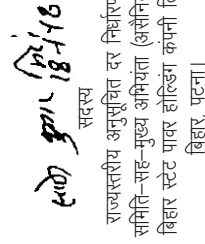 सदस्य
राज्यस्तरीय अनुसूचित दर निर्धारण
समिति–सह–मुख्य अभियंता (असैनिक
बिहार स्टेट पावर होल्डिंग कंपनी लि
बिहार, पटना।